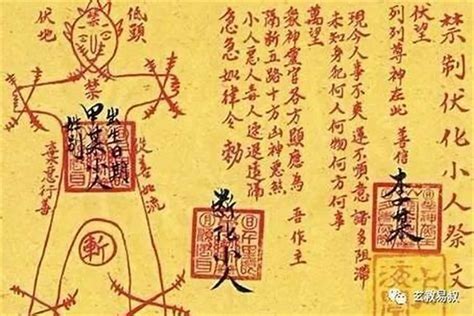 禁制伏化小人祭文
伏望
列列尊神在此 善信 李某
現今人事不爽運不順意諸多阻滯
未知身犯何人何物何方何事
萬望
眾神靈官各方顯應為 吾作主
隔斷五路十方凶神惡煞
小人惡人毒人遠退遠隔
急急如律令 勅
斬化小人
低頭
伏地
禁
禁
出生日期
甲某小人
性別
從善如流
棄惡行善
斬
玄教易叔